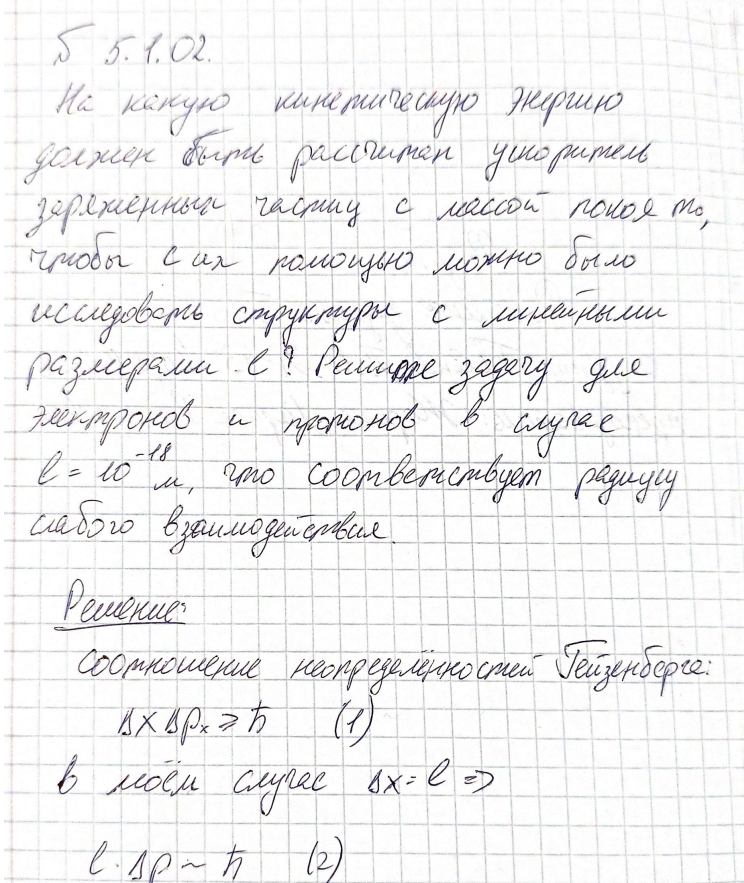 Б 5.1.02.
На какую кинетическую энергию
должен быть рассчитан ускоритель
заряженных частиц с массой покоя m₀,
чтобы с их помощью можно было
исследовать структуры с линейными
размерами l? Решите задачу для
электронов и протонов в случае
l = 10⁻¹⁸ м, что соответствует радиусу
слабого взаимодействия.
Решение:
Соотношение неопределённостей Гейзенберга:
Δx Δpₓ ⩾ ħ (1)
в моём случае Δx = l ⇒
l · Δp ~ ħ (2)